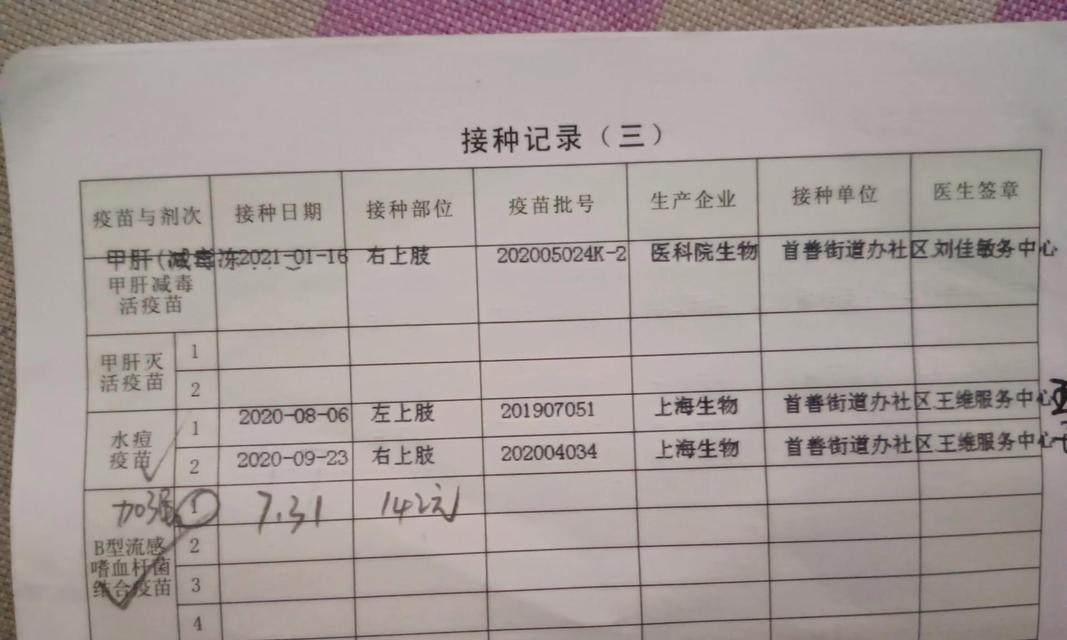 接种记录（三）
疫苗与剂次 接种日期 接种部位 疫苗批号 生产企业 接种单位 医生签章
甲肝(减毒冻 2021-01-16 右上肢 202005024K-2 医科院生物 首善街道办社区刘佳敏务中心
甲肝减毒
活疫苗
甲肝灭
活疫苗
1
2
水痘
疫苗
1 2020-08-06 左上肢 201907051 上海生物 首善街道办社区王维服务中心
2 2020-09-23 右上肢 202004034 上海生物 首善街道办社区王维服务中心
加强 1 7.31 142元
B型流感
嗜血杆菌
结合疫苗
2
3
4